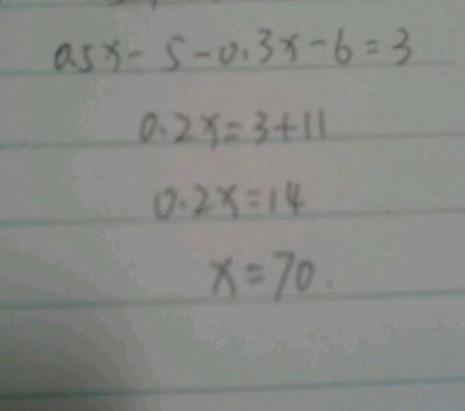 0.5x-5-0.3x-6=3
0.2x=3+11
0.2x=14
x=70.